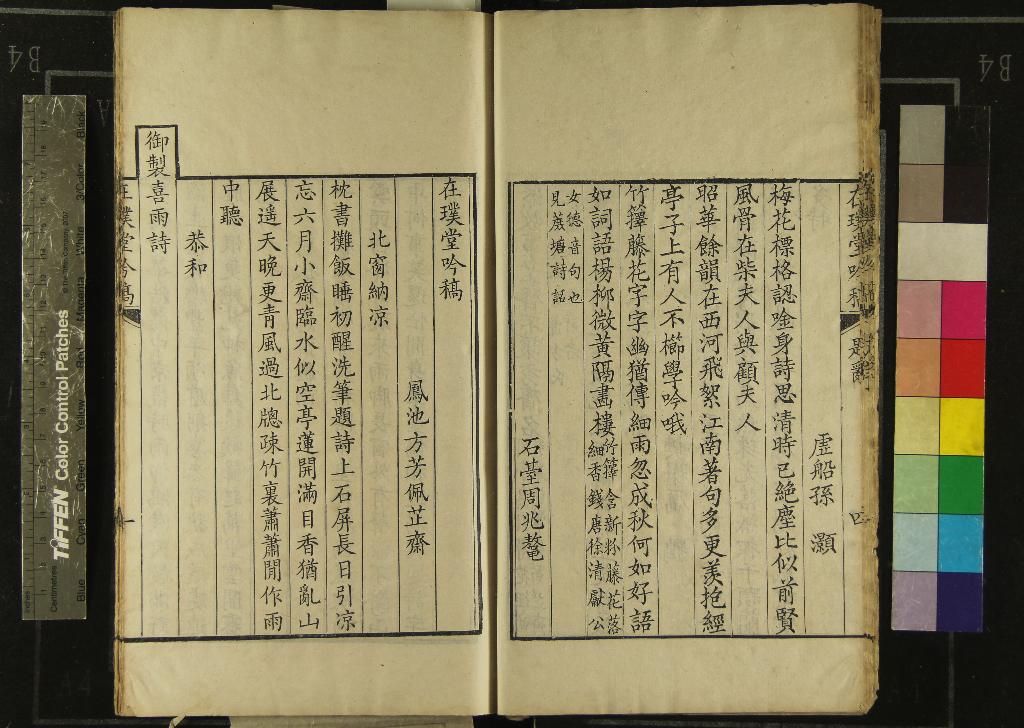 虛船孫 灝
梅花標格認唫身詩思清時已絕塵比似前賢
風骨在柴夫人與顧夫人
昭華餘韻在西河飛絮江南著句多更羨抱經
亭子上有人不櫛學吟哦
竹籜藤花字字幽猶傳細雨忽成秋何如好語
如詞語楊柳微黃隔畫樓竹籜含新粉藤花落
細香錢唐徐清獻公
女德音句也
見蕺塘詩話
石臺周兆鼇
在璞堂吟稿
鳳池方芳佩芷齋
北窗納凉
枕書攤飯睡初醒洗筆題詩上石屏長日引凉
忘六月小齋臨水似空亭蓮開滿目香猶亂山
展遥天晚更青風過北牕疎竹裏蕭蕭閒作雨
中聽
恭和
御製喜雨詩
在璞堂吟稿
一
TIFFEN Color Control Patches
Centimetres
Blue
Cyan
Green
Yellow
Red
Magenta
White
3/Color
Black
B4
B4